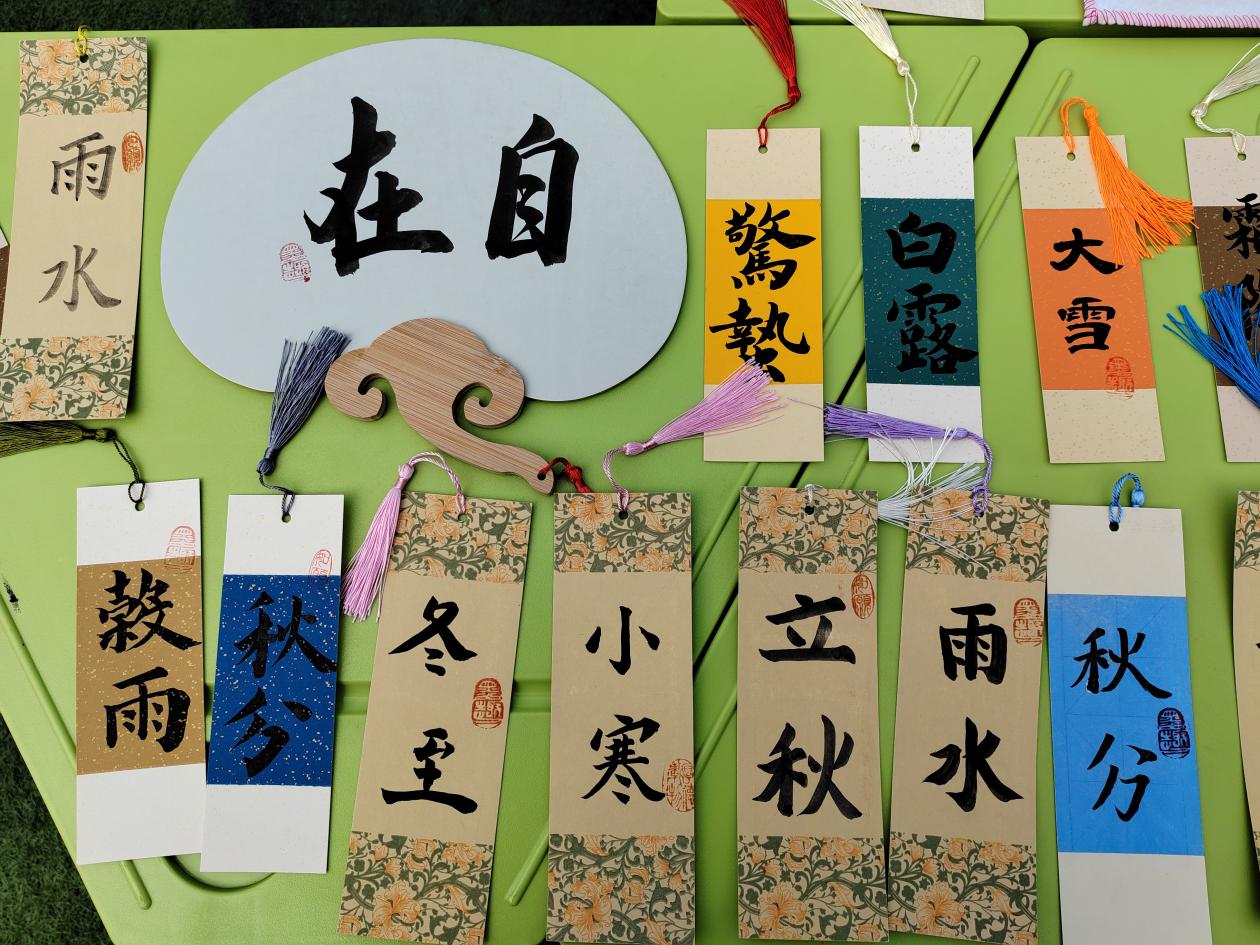 雨水
自在
驚蟄
白露
大雪
霜降
穀雨
秋分
冬至
小寒
立秋
雨水
秋分